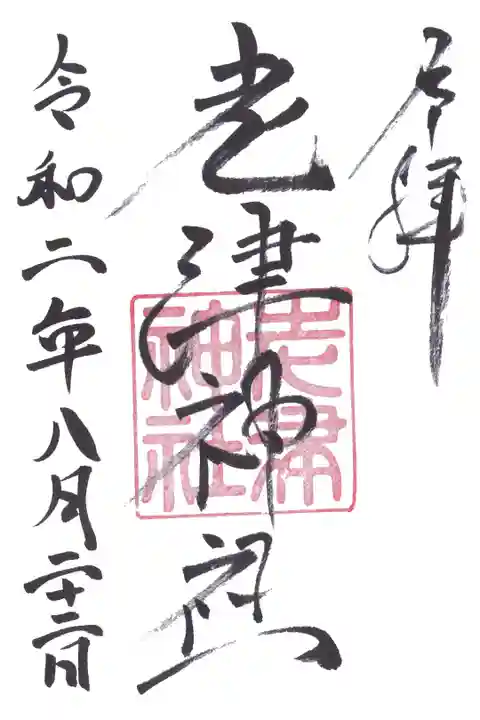 奉拝
老津神社
老津
神社
令和二年八月二十二日